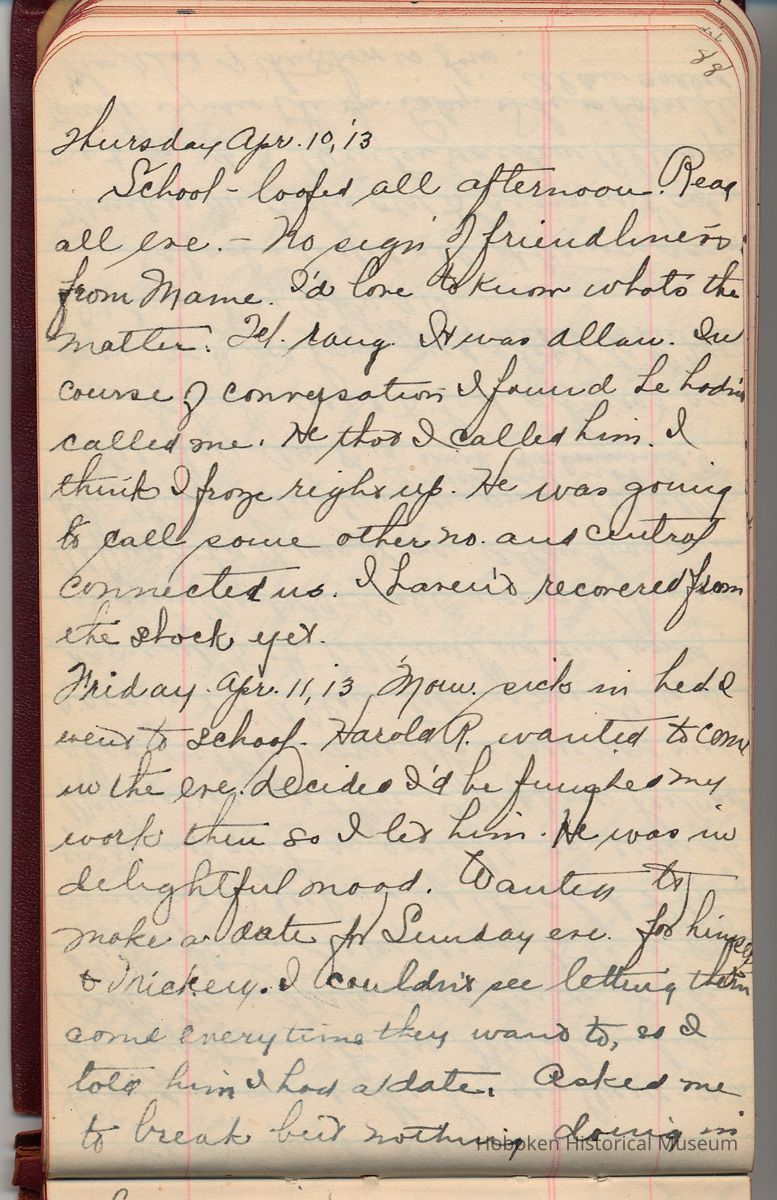 88
Thursday Apr. 10, '13
School - loafed all afternoon. Read
all eve. - No sign of friendliness
from Mame. I'd love to know what's the
matter. Tel. rang. It was Allan. In
course of conversation I found he hadn't
called me. He thot I called him. I
think I froze right up. He was going
to call some other no. and central
connected us. I haven't recovered from
the shock yet.
Friday. Apr. 11, 13 Mom. sick in bed. I
went to school. Harold R. wanted to come
in the eve. Decided I'd be finished my
work then so I let him. He was in
delightful mood. Wanted to
make a date for Sunday eve. for himself
& Mickey. I couldn't see letting them
come everytime they want to, so I
told him I had a date. Asked me
to break but nothing doing in
Hoboken Historical Museum